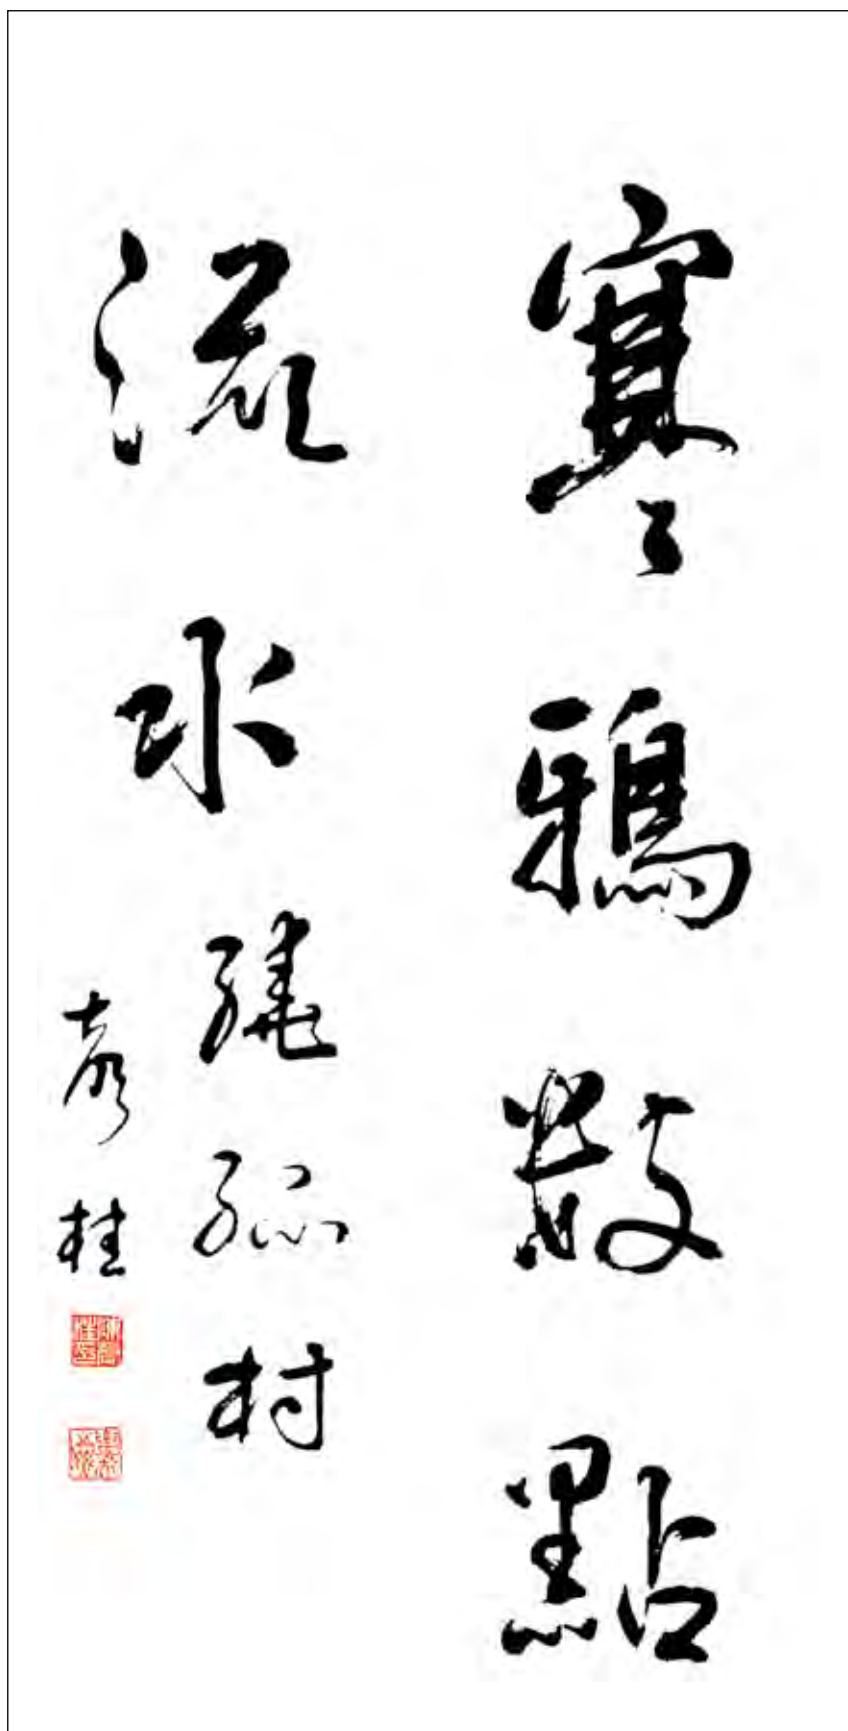 寒鴉數點
流水繞孤村
彥桂